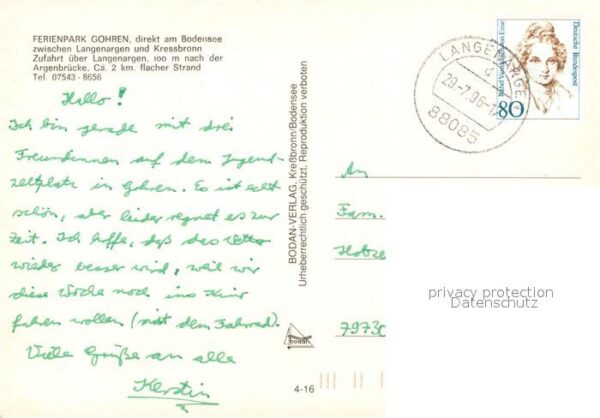 FERIENPARK GOHREN, direkt am Bodensee
zwischen Langenargen und Kressbronn
Zufahrt über Langenargen, 100 m nach der
Argenbrücke, Ca. 2 km. flacher Strand
Tel. 07543 - 8656
Hallo!
Ich bin gerade mit drei
Freundinnen auf dem Jugend-
zeltplatz in Gohren. Es ist echt
schön, aber leider regnet es zur
Zeit. Ich hoffe, daß das Wetter
wieder besser wird, weil wir
diese Woche noch ins Kino
fahren wollen (mit dem Fahrrad).
Viele Grüße an alle
Kerstin
BODAN-VERLAG, Kreßbronn/Bodensee
Urheberrechtlich geschützt, Reproduktion verboten
bodan
4-16
LANGENARGE
29.-7.96-17
88085
Deutsche Bundespost
80
An
Fam.
7973
privacy protection
Datenschutz